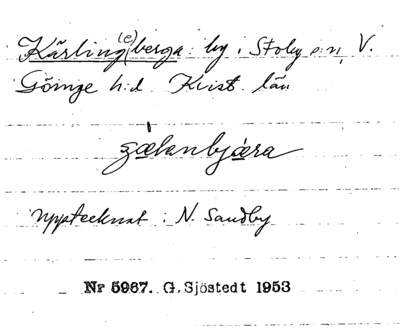 Käʀling(e)berga: by, Stoby s:n, V.
Göinge h:d Krist. län
Upptecknat i N. Sandby
Nr 5967. G. Sjöstedt 1953